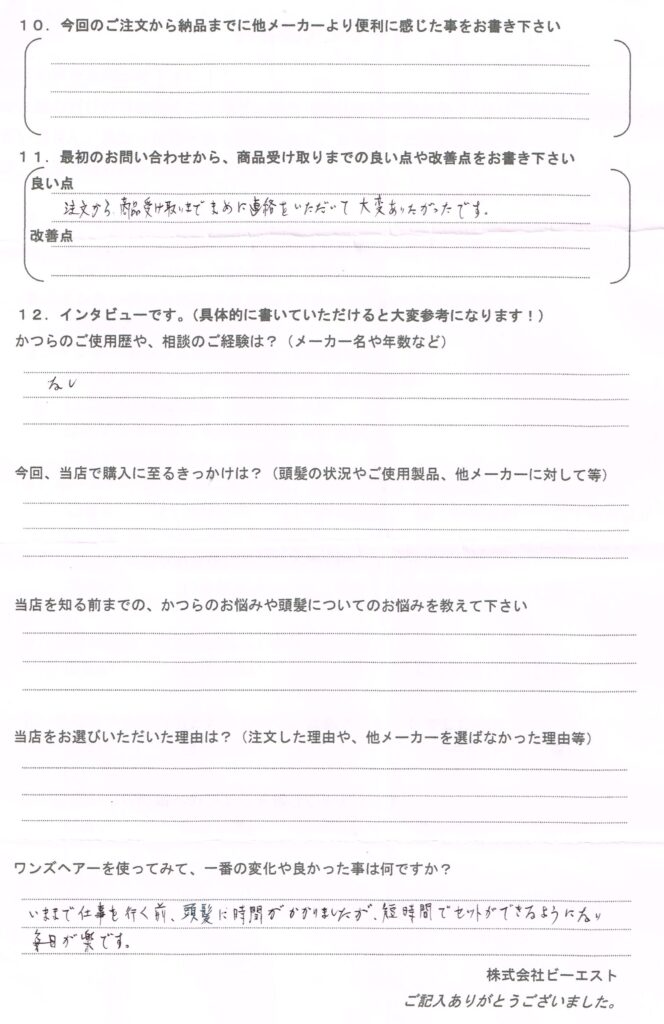 １０．今回のご注文から納品までに他メーカーより便利に感じた事をお書き下さい
１１．最初のお問い合わせから、商品受け取りまでの良い点や改善点をお書き下さい
良い点
注文から、商品受け取りまで まめに連絡をいただいて 大変ありがたかったです。
改善点
１２．インタビューです。（具体的に書いていただけると大変参考になります！）
かつらのご使用歴や、相談のご経験は？（メーカー名や年数など）
なし
今回、当店で購入に至るきっかけは？（頭髪の状況やご使用製品、他メーカーに対して等）
当店を知る前までの、かつらのお悩みや頭髪についてのお悩みを教えて下さい
当店をお選びいただいた理由は？（注文した理由や、他メーカーを選ばなかった理由等）
ワンズヘアーを使ってみて、一番の変化や良かった事は何ですか？
いままで仕事も行く前、頭髪に時間がかかりましたが、短時間でセットができるようになり
毎日が楽です。
株式会社ビーエスト
ご記入ありがとうございました。